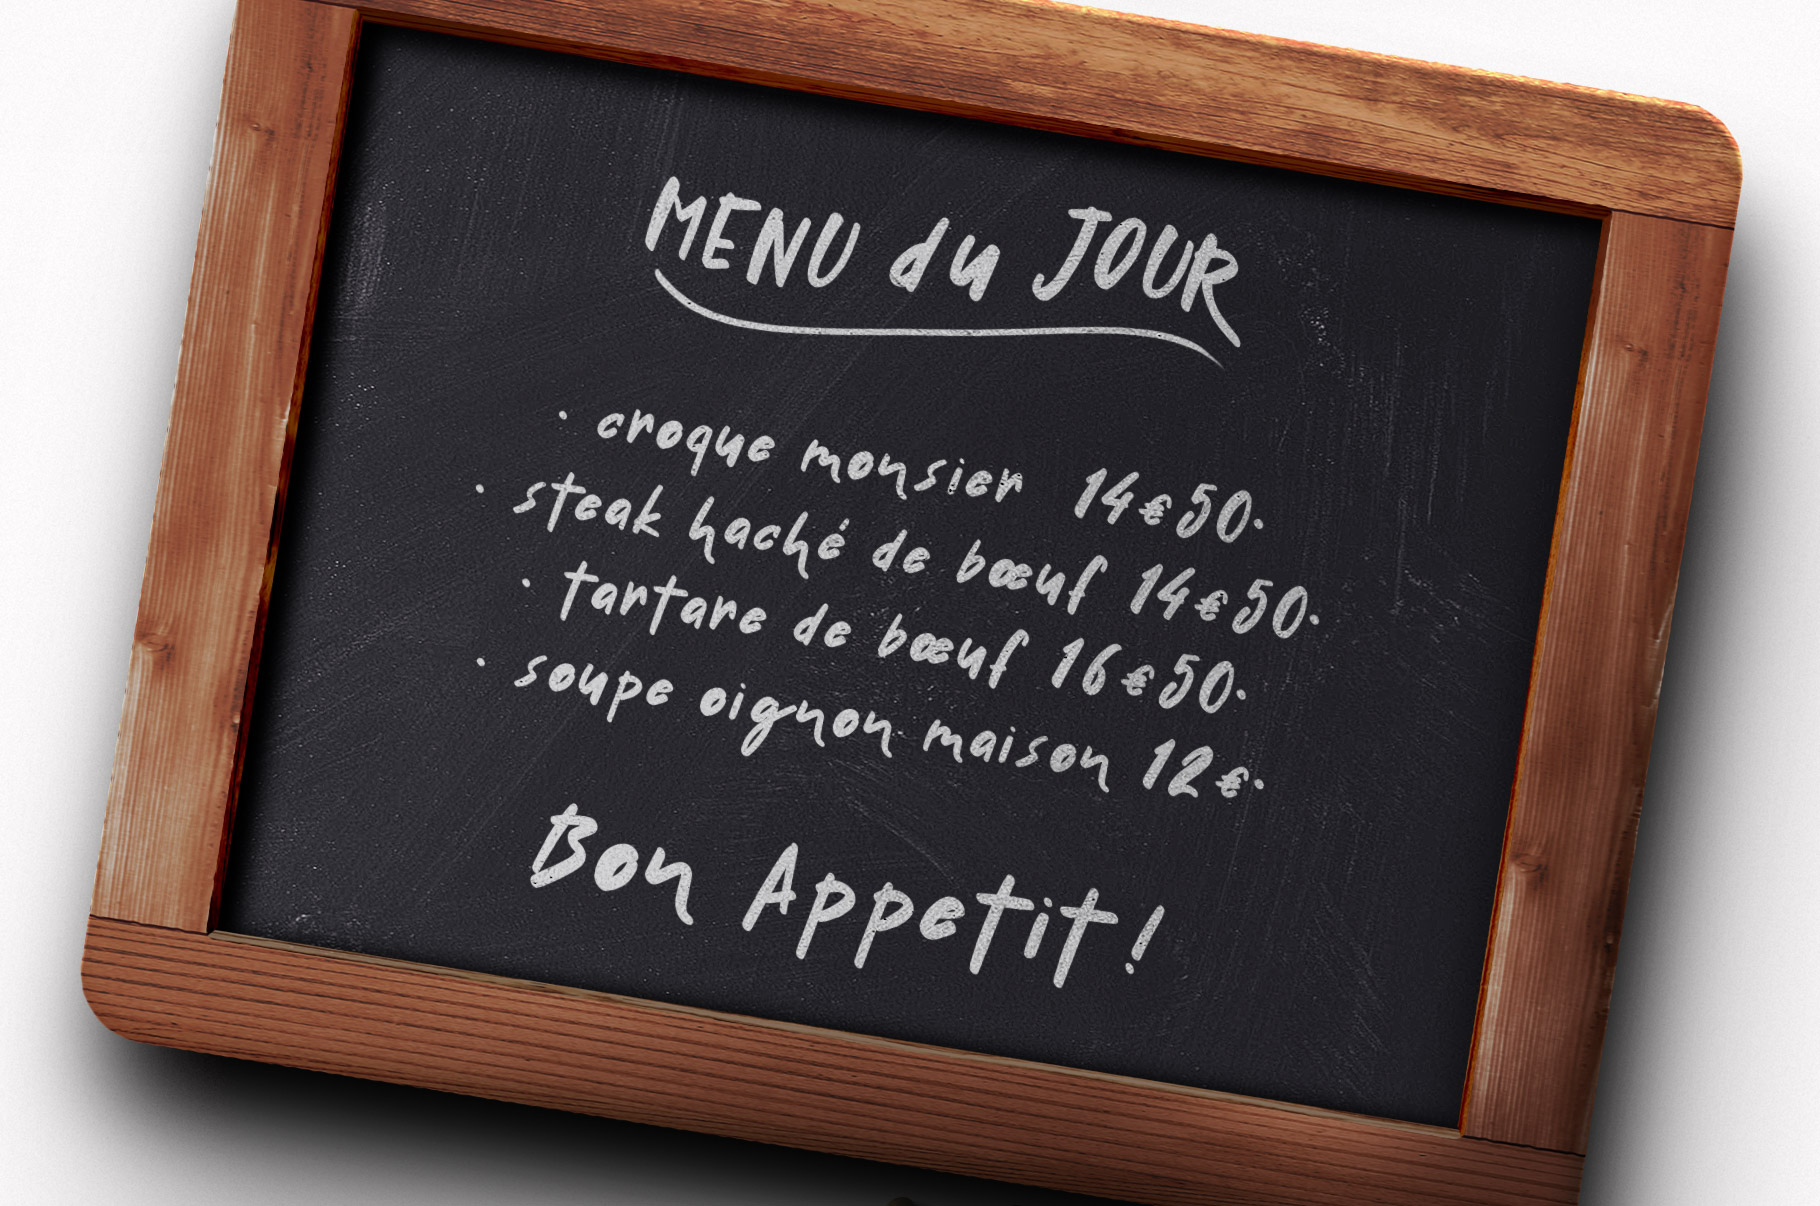 MENU du JOUR
· croque monsier 14€50·
· steak haché de bœuf 14€50·
· tartare de bœuf 16€50·
· soupe oignon maison 12€·
Bon Appetit !